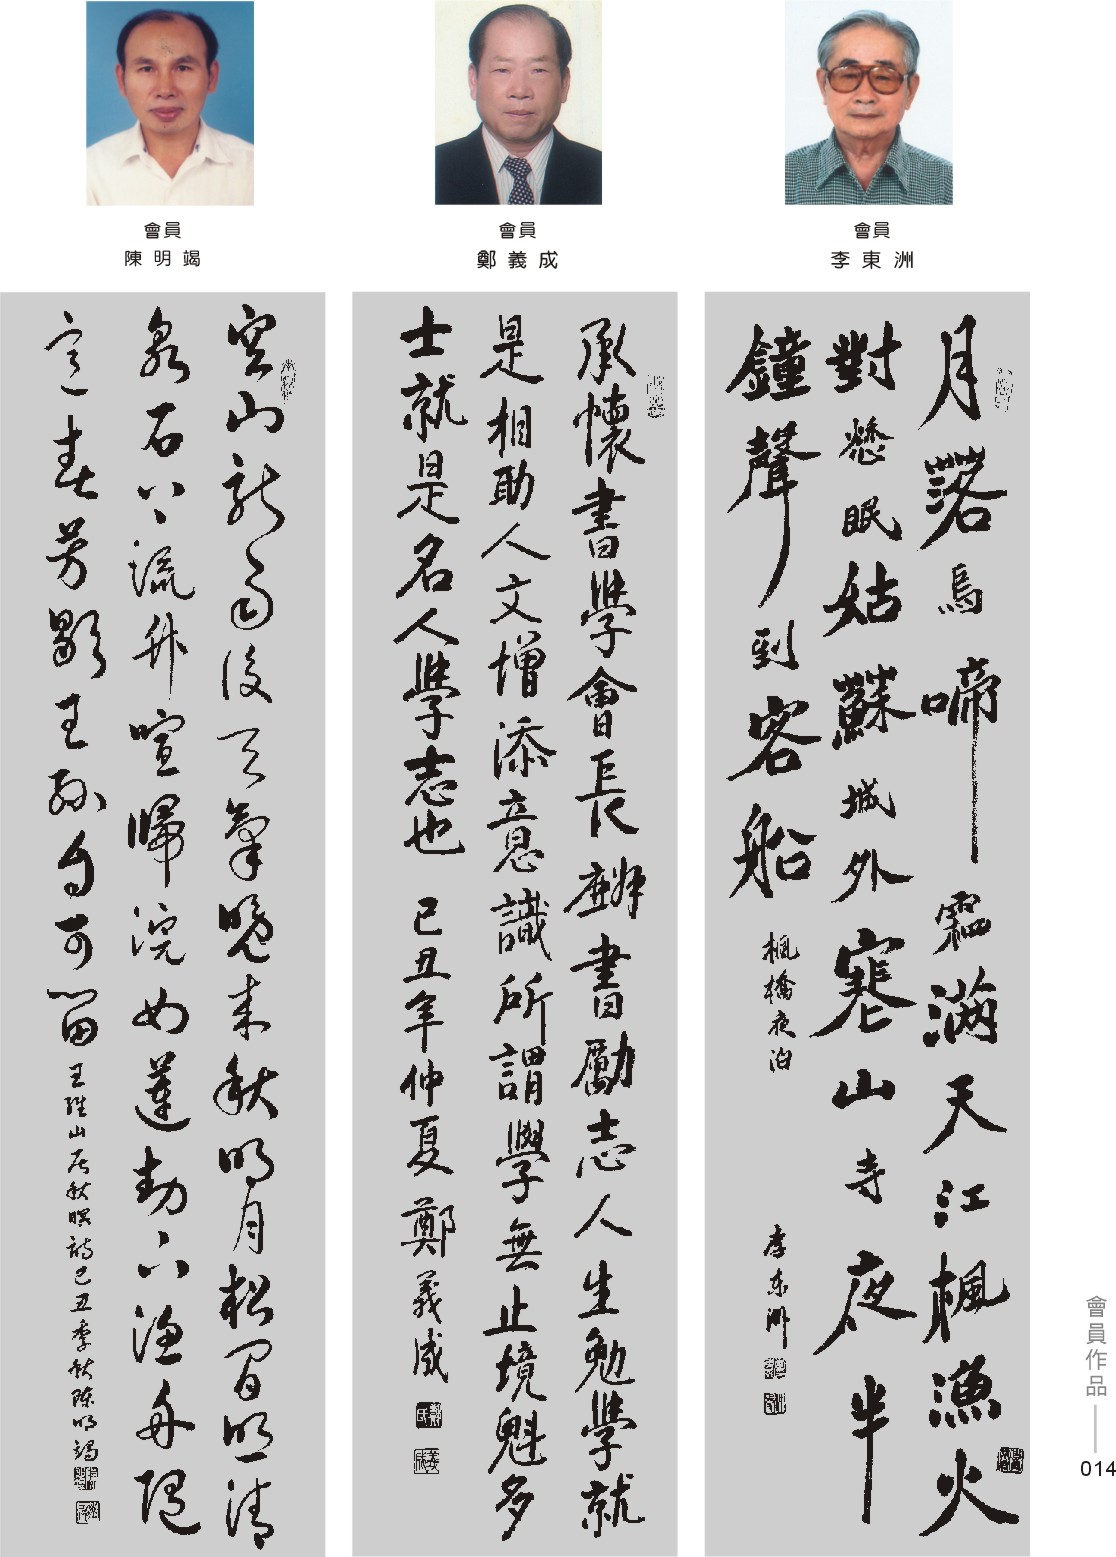 會員
李東洲
會員
鄭義成
會員
陳明竭
月落烏啼霜滿天江楓漁火
對愁眠姑蘇城外寒山寺夜半
鐘聲到客船 楓橋夜泊 李東洲
承懷書學會長麟書勵志人生勉學就
是相助人文增添意識所謂學無止境魁多
士就是名人學志也 己丑年仲夏鄭義成
空山新雨後天氣晚來秋明月松間照清
泉石上流竹喧歸浣女蓮動下漁舟隨
意春芳歇王孫自可留 王維山居秋暝詩己丑季秋陳明竭
會員作品
014